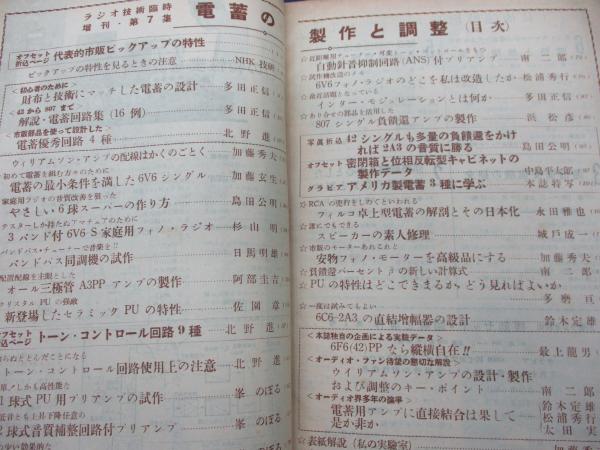 ラジオ技術臨時
増刊・第7集
電蓄の
オフセット
折込ページ 代表的市販ピックアップの特性
ピックアップの特性を見るときの注意 NHK 技研
<初心者のために>
財布と技術にマッチした電蓄の設計 多田正信
<42から807まで>
解説・電蓄回路集(16例) 多田正信
<市販部品を使って設計した>
電蓄優秀回路4種 北野進
ウィリアムソン・アンプの配線はかくのごとく 加藤秀夫
初めて電蓄を組む方々のために
電蓄の最小条件を満した6V6シングル 加藤玄生
家庭用ラジオの音質改善を狙った
やさしい6球スーパーの作り方 島田公明
テスターしか持たぬアマチュアのために
3バンド付6V6-S家庭用フォノ・ラジオ 杉山明
バンドパス・チューナーで音楽を!!
バンドパス同調機の試作 日馬明雄
配置配線を主眼とした
オール三極管A3PPアンプの製作 阿部圭吉
クリスタルPUの強敵
新登場したセラミックPUの特性 佐図章
オフセット
折込ページ トーン・コントロール回路9種 北野進
トーン・コントロール回路使用上の注意 北野進
しかも高性能な
1球式PU用プリアンプの試作 峯のぼる
低音とも上昇下降任意の
2球式音質補整回路付プリアンプ 峯のぼる
製作と調整(目次)
自動針音抑制回路(ANS)付プリアンプ 南二郎
☆試作機改造のメモ
6V6フォノ・ラジオのどこを私は改造したか 松浦秀行
☆最近話題となっている
インター・モジュレーションとは何か 多田正信
☆あり合せの部品を活用した
807シングル負饋還アンプの製作 浜松彦
写真折込 42シングルも多量の負饋還をかければ2A3の音質に勝る 島田公明
オフセット 密閉箱と位相反転型キャビネットの製作データ 中島平太郎
グラビア アメリカ製電蓄3種に学ぶ 本誌特写
☆RCAの兜行をしのぐといわれる
フィルコ卓上型電蓄の解剖とその日本化 永田雅也
☆誰にもできる
スピーカーの素人修理 城戸成一
☆市販のモーターあれこれと
安物フォノ・モーターを高級品にする 加藤秀夫
☆負饋還パーセントβの新しい計算式 南二郎
☆PUの特性はどこできまるか、どう見ればよいか 多摩亘
☆一度は試みてもよい
6C6-2A3の直結増幅器の設計 鈴木定雄
<本誌独自の企画による実験データ>
6F6(42)PPなら縦横自在!! 最上龍男
<オーディオ・ファン待望の懇切な解説>
ウイリアムソン・アンプの設計・製作
および調整のキー・ポイント 南二郎
<オーディオ界多年の論争>
電蓄用アンプに直接結合は果して是か非か 鈴木定雄 松浦秀行 太田実
☆表紙解説(私の実験室) 加藤秀